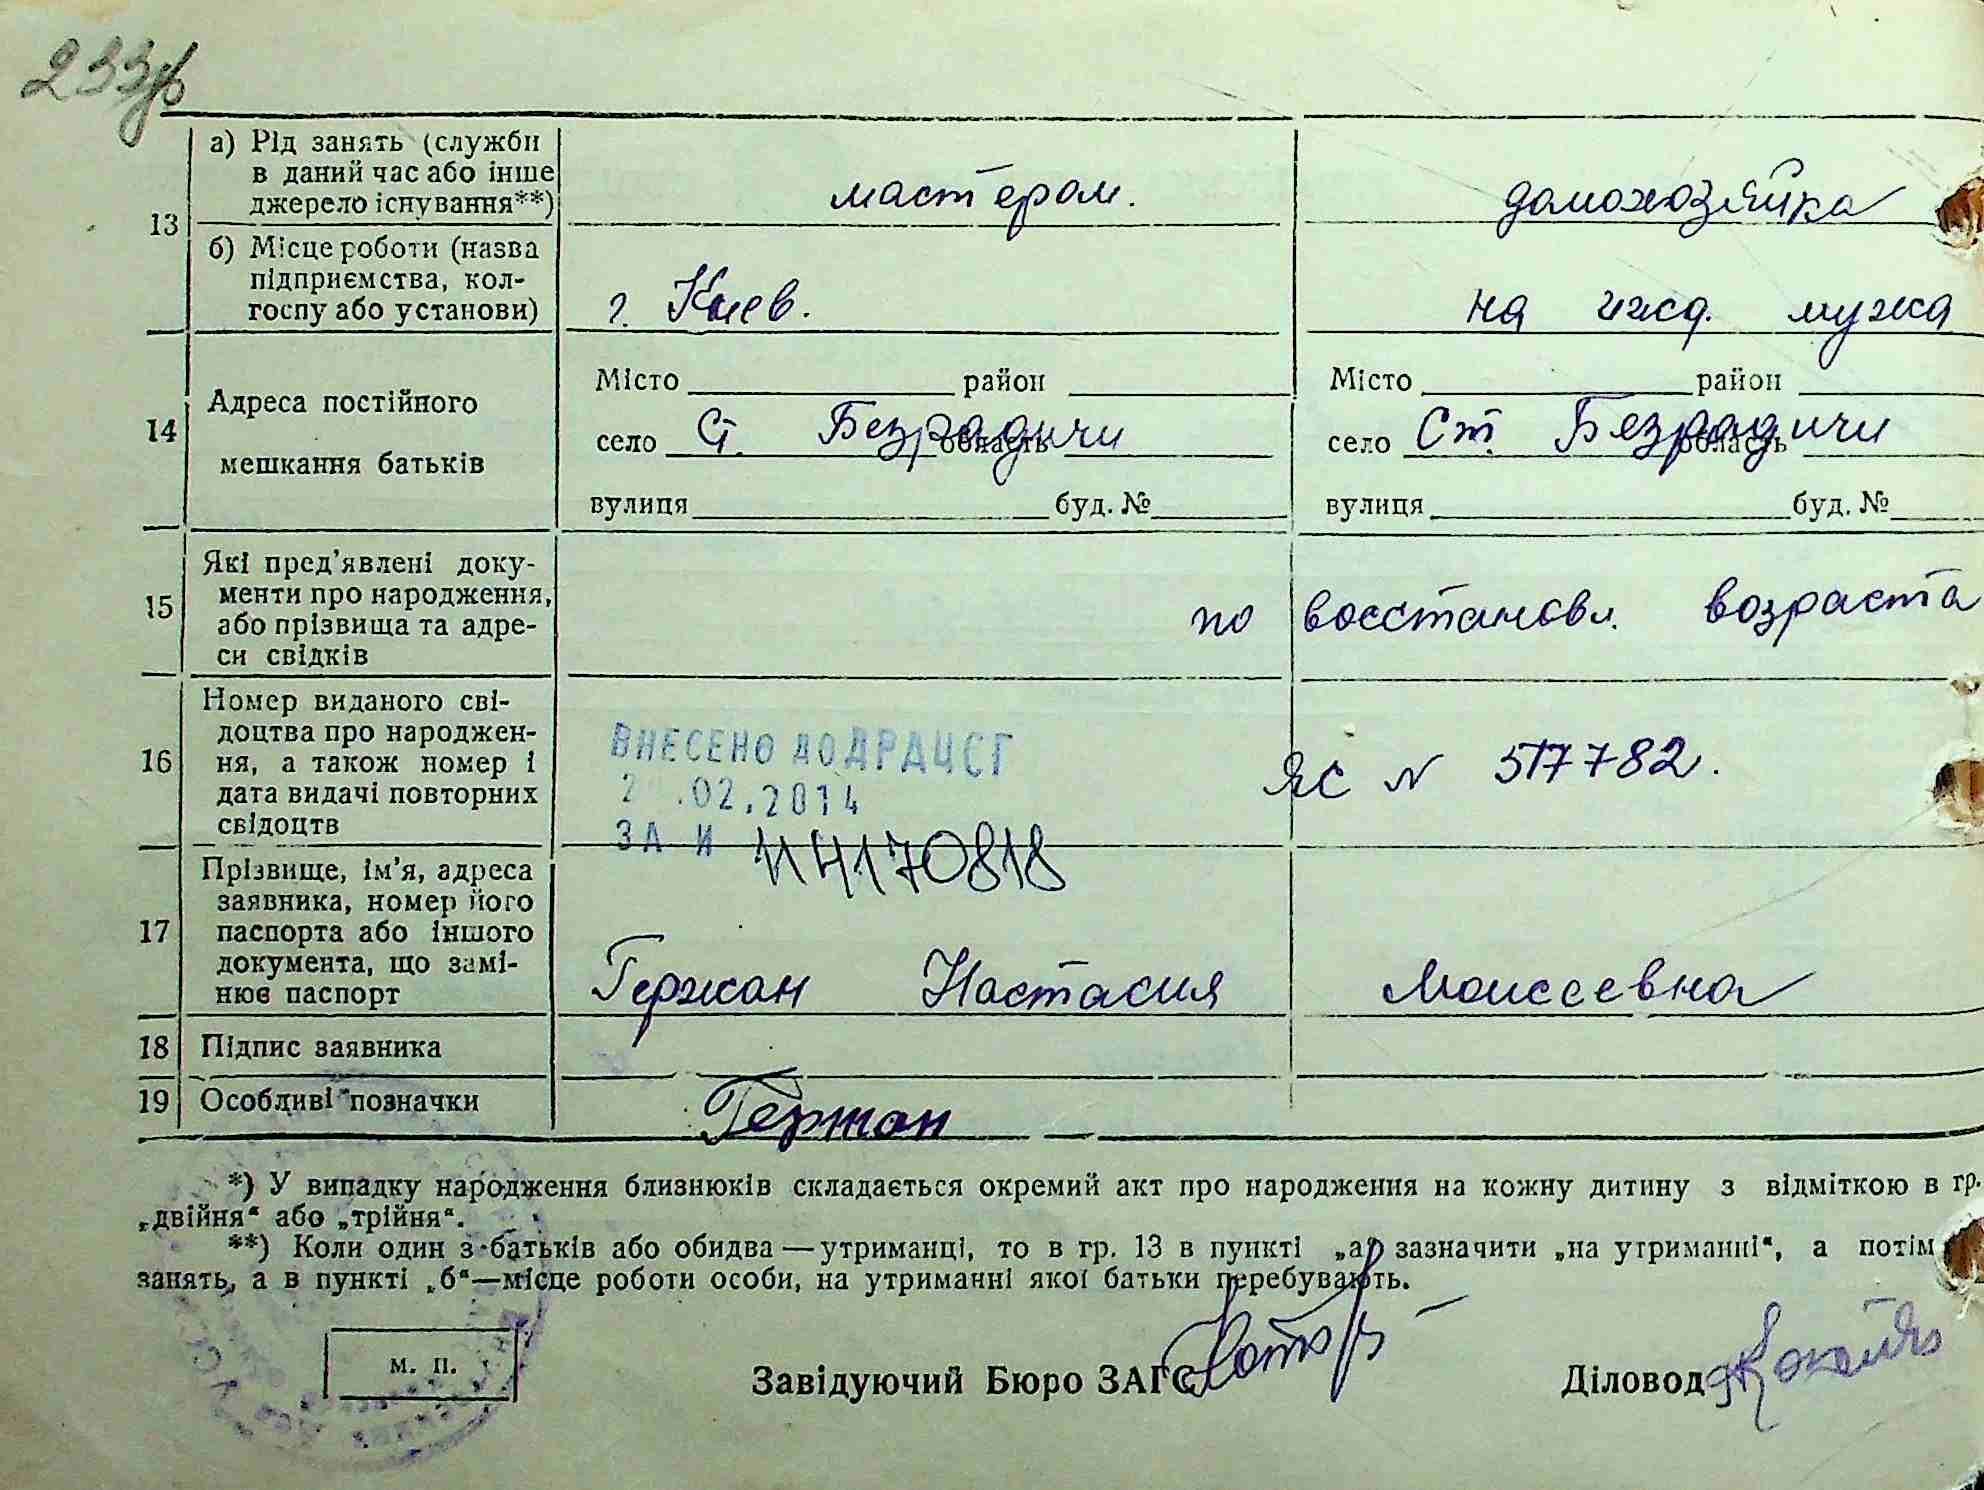 233
а) Рід занять (служби
в даний час або інше
джерело існування**)
мастером.
домохозяйка
13
б) Місце роботи (назва
підприємства, кол-
госпу або установи)
г. Киев.
на ижд. мужа
14
Адреса постійного
мешкання батьків
Місто район
село Ст. Безрадичи область
вулиця буд. №
Місто район
село Ст. Безрадичи область
вулиця буд. №
15
Які пред'явлені доку-
менти про народження,
або прізвища та адре-
си свідків
по восстановл. возраста
16
Номер виданого сві-
доцтва про народжен-
ня, а також номер і
дата видачі повторних
свідоцтв
ВНЕСЕНО ДО ДРАЦСГ
.02.2014
ЗА И 114170818
ЯС N 517782.
17
Прізвище, ім'я, адреса
заявника, номер його
паспорта або іншого
документа, що замі-
нює паспорт
Гержан Настасия Моисеевна
18 Підпис заявника
19 Особливі позначки
Гержан
*) У випадку народження близнюків складається окремий акт про народження на кожну дитину з відміткою в гр.
„двійня“ або „трійня“.
**) Коли один з батьків або обидва — утриманці, то в гр. 13 в пункті „а“ зазначити „на утриманні“, а потім
занять, а в пункті „б“—місце роботи особи, на утриманні якої батьки перебувають.
м. п.
Завідуючий Бюро ЗАГС
Діловод